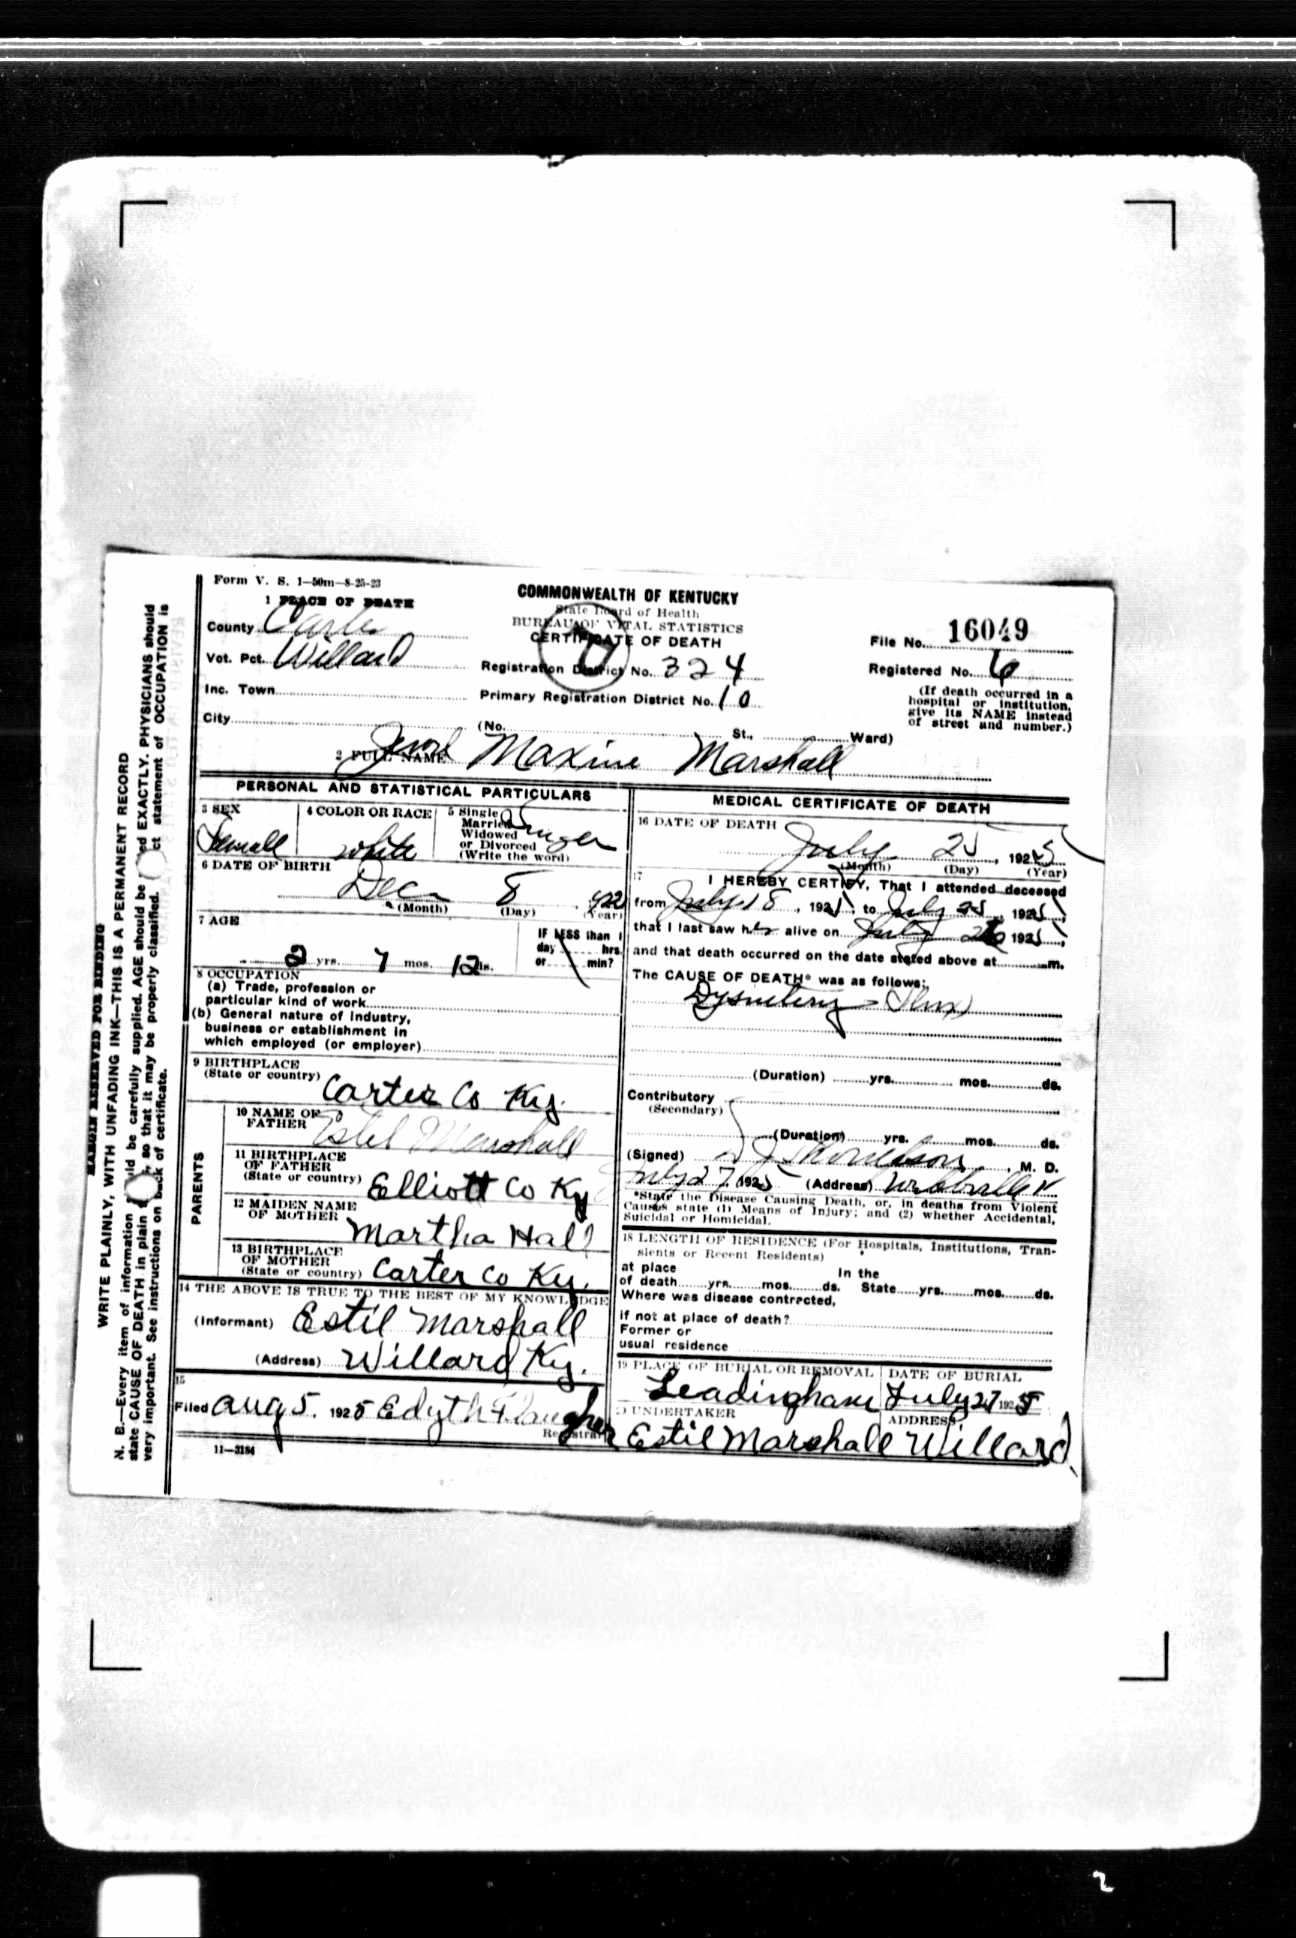 Form V. S. 1—50m—8-25-23
1 PLACE OF DEATH
County Carter
Vot. Pct. Willard
Inc. Town
City
COMMONWEALTH OF KENTUCKY
State Board of Health
BUREAU OF VITAL STATISTICS
CERTIFICATE OF DEATH
Registration District No. 324
Primary Registration District No. 10
(No. St., Ward)
File No. 16049
Registered No. 6
(If death occurred in a
hospital or institution,
give its NAME instead
of street and number.)
2 FULL NAME Maxine Marshall
PERSONAL AND STATISTICAL PARTICULARS
3 SEX
Femall
4 COLOR OR RACE
white
5 Single
Married
Widowed
or Divorced
(Write the word)
6 DATE OF BIRTH
Dec 8 1922
(Month) (Day) (Year)
7 AGE
2 yrs. 7 mos. 12 ds.
IF LESS than 1
day hrs.
or min?
8 OCCUPATION
(a) Trade, profession or
particular kind of work
(b) General nature of Industry,
business or establishment in
which employed (or employer)
9 BIRTHPLACE
(State or country) Carter Co Ky.
PARENTS
10 NAME OF
FATHER Estel Marshall
11 BIRTHPLACE
OF FATHER
(State or country) Elliott Co Ky
12 MAIDEN NAME
OF MOTHER Martha Hall
13 BIRTHPLACE
OF MOTHER
(State or country) Carter Co Ky.
14 THE ABOVE IS TRUE TO THE BEST OF MY KNOWLEDGE
(Informant) Estil Marshall
(Address) Willard Ky.
15
Filed Aug 5. 1925 Edyth
Registrar
11—3184
MEDICAL CERTIFICATE OF DEATH
16 DATE OF DEATH
July 25, 1925
(Month) (Day) (Year)
17 I HEREBY CERTIFY, That I attended deceased
from July 18, 1925, to July 25, 1925,
that I last saw her alive on July 1925,
and that death occurred on the date stated above at m.
The CAUSE OF DEATH* was as follows:
Dysnetery (Flux)
(Duration) yrs. mos. ds.
Contributory
(Secondary)
(Duration) yrs. mos. ds.
(Signed) M. D.
July 27, 1925 (Address)
*State the Disease Causing Death, or, in deaths from Violent
Causes state (1) Means of Injury; and (2) whether Accidental,
Suicidal or Homicidal.
18 LENGTH OF RESIDENCE (For Hospitals, Institutions, Tran-
sients or Recent Residents)
at place In the
of death yrs. mos. ds. State yrs. mos. ds.
Where was disease contracted,
if not at place of death?
Former or
usual residence
19 PLACE OF BURIAL OR REMOVAL
Leadingham
DATE OF BURIAL
July 27 1925
UNDERTAKER
Estil Marshall
ADDRESS
Willard
MARGIN RESERVED FOR BINDING
WRITE PLAINLY, WITH UNFADING INK—THIS IS A PERMANENT RECORD
N. B.—Every item of information be carefully supplied. AGE should be EXACTLY. PHYSICIANS should
state CAUSE OF DEATH in plain so that it may be properly classified. statement of OCCUPATION is
very important. See instructions on back of certificate.
2